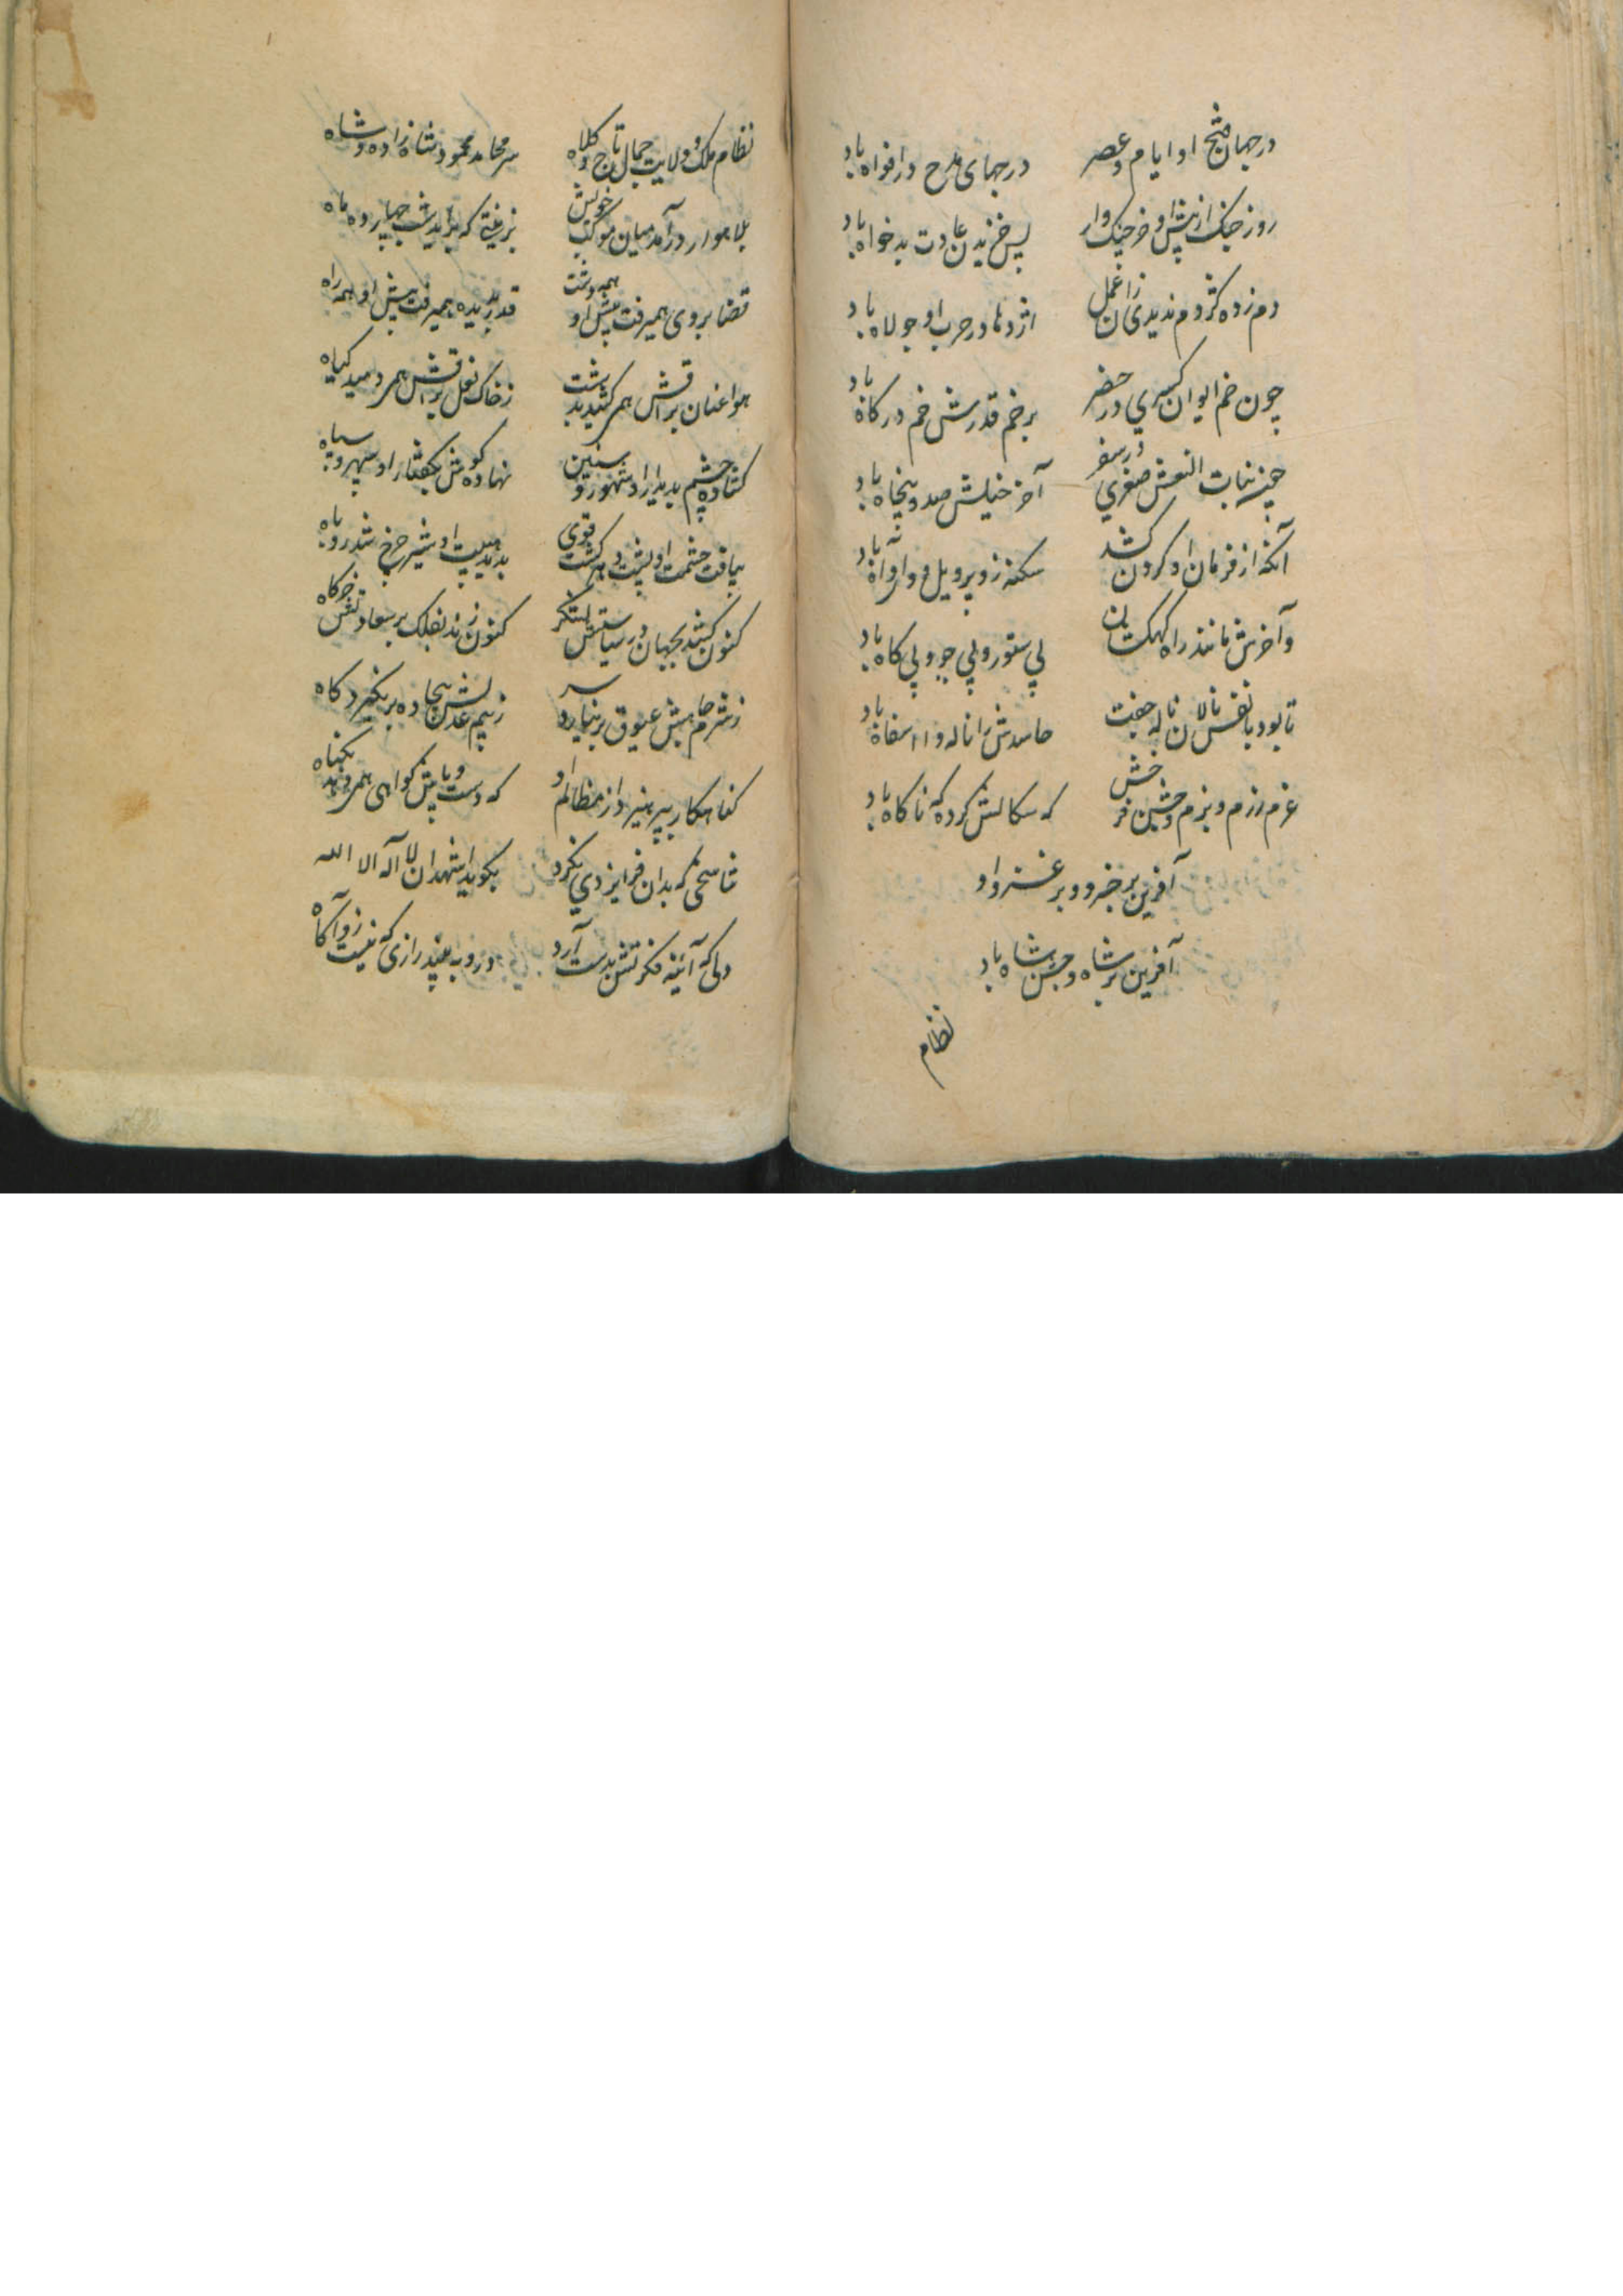 در جهان فتح او ایام و عصر در جهای مدح در افواه باد
روز جنک از پیش او خرچنک وار پس خزیدن عادت بدخواه باد
دم زده کژدم ندیدی زان عمل اژدها در حرب او جولاه باد
چون خم ایوان کسری در حضر بر خم قدرش خم درکاه باد
چیز بنات النعش صغری در سفر آخر خیلش صد و پنجاه باد
آنکه از فرمان او کردن کشد سکنه زو پر ویل و وا و آه باد
و آخرش مانند راه کهکشان بی ستور و بی جو و بی کاه باد
تا بود با نفس نالان ناله جفت حاسدش را ناله وا اسفاه باد
عزم رزم و بزم و جشن فر خش که سکالش کرده که ناکاه باد
آفرین بر خسرو و بر غزو او
آفرین بر شاه و جشن شاه باد
نظام
نظام ملک و ولایت جمال تاج و کلاه سر محامد محمود شاه زاده و شاه
بلاهوار در آمد میان موکب خویش بزینتی که برآید شب چهارده ماه
قضا بروی همیرفت پیش او همه دشت قدر بدیده همیرفت پیش او همه راه
هوا عنان براقش همی کشید بدشت ز خاک نعل براقش همی دمید کیاه
کشاده چشم بدیدار او شهور و سنین نهاده کوش بکفتار او سپید و سیاه
بیافت حشمت او پشت و هم کشت قوی بدید هیبت او شیر چرخ شد روباه
کنون کشد بجهان در سیاستش لشکر کنون زند بفلک بر سعادتش خرکاه
ز شرم جاهش عیوق بر نیارد سر ز بیم عدلش بیجاده بر نکیرد کاه
کناهکار بپرهیزد از مظالم او که دست و پایش کواهی همی دهد بکناه
شاسخی که بدان فر ایزدی نکرد بکوید اشهد ان لا آله الا الله
دلی که آئینه فکرتش بدست آرد درو به بیند رازی که نیست زو آکاه